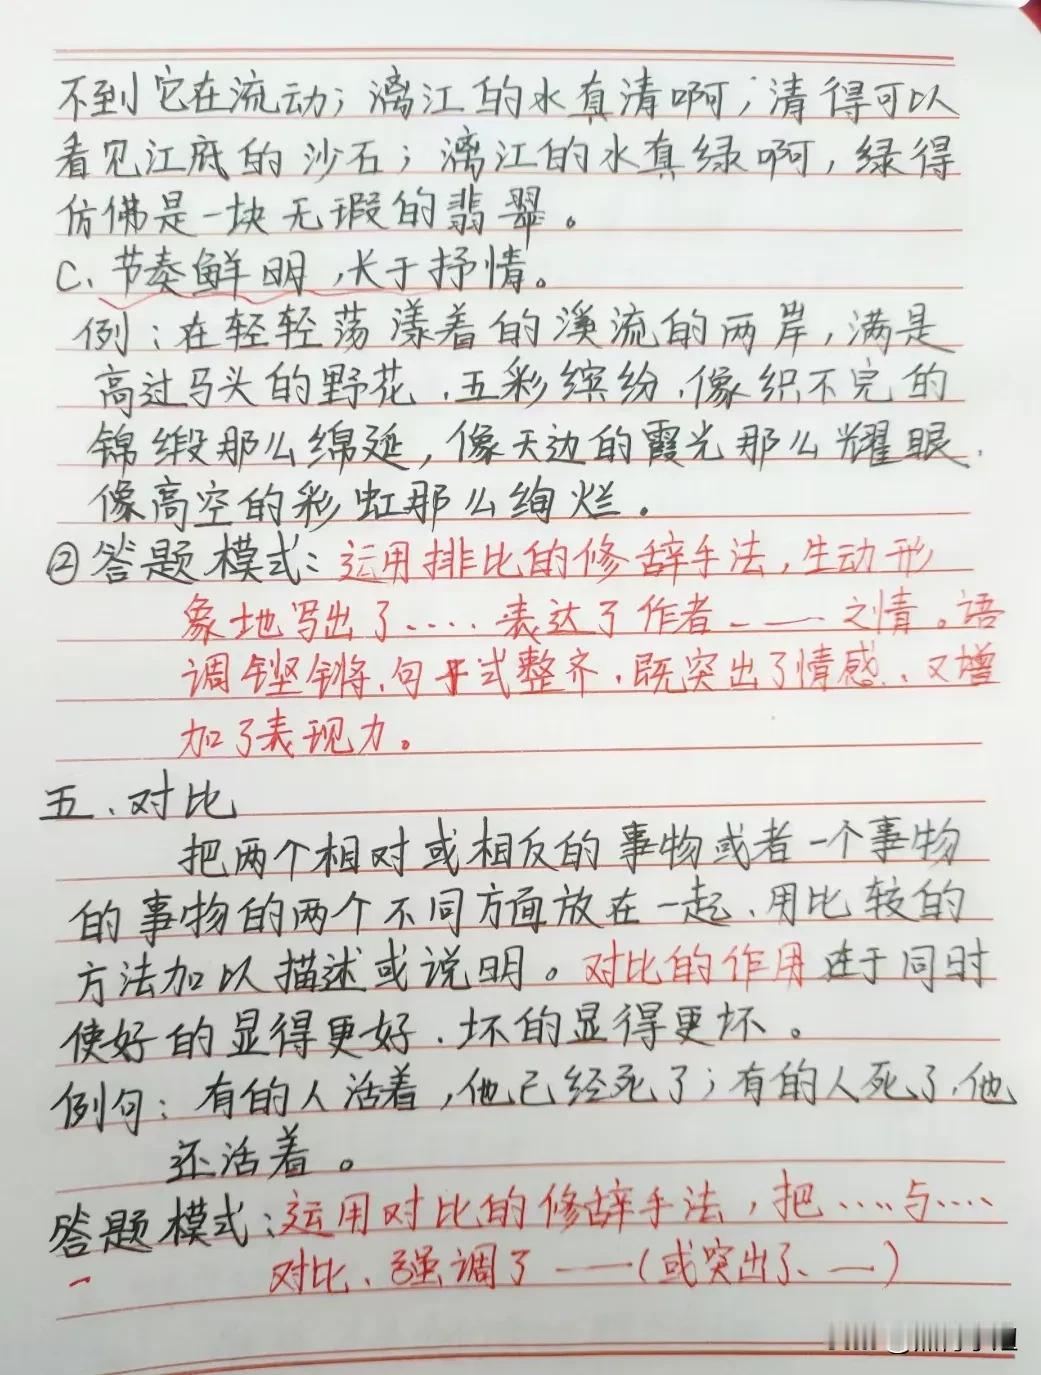 不到它在流动；漓江的水真清啊，清得可以
看见江底的沙石；漓江的水真绿啊，绿得
仿佛是一块无瑕的翡翠。
C、节奏鲜明，长于抒情。
例：在轻轻荡漾着的溪流的两岸，满是
高过马头的野花，五彩缤纷，像织不完的
锦缎那么绵延，像天边的霞光那么耀眼，
像高空的彩虹那么绚烂。
②答题模式：运用排比的修辞手法，生动形
象地写出了....表达了作者——之情。语
调铿锵，句式整齐，既突出了情感，又增
加了表现力。
五、对比
把两个相对或相反的事物或者一个事物
的事物的两个不同方面放在一起，用比较的
方法加以描述或说明。对比的作用在于同时
使好的显得更好，坏的显得更坏。
例句：有的人活着，他已经死了；有的人死了，他
还活着。
答题模式：运用对比的修辞手法，把.....与....
对比，强调了——（或突出了、—）